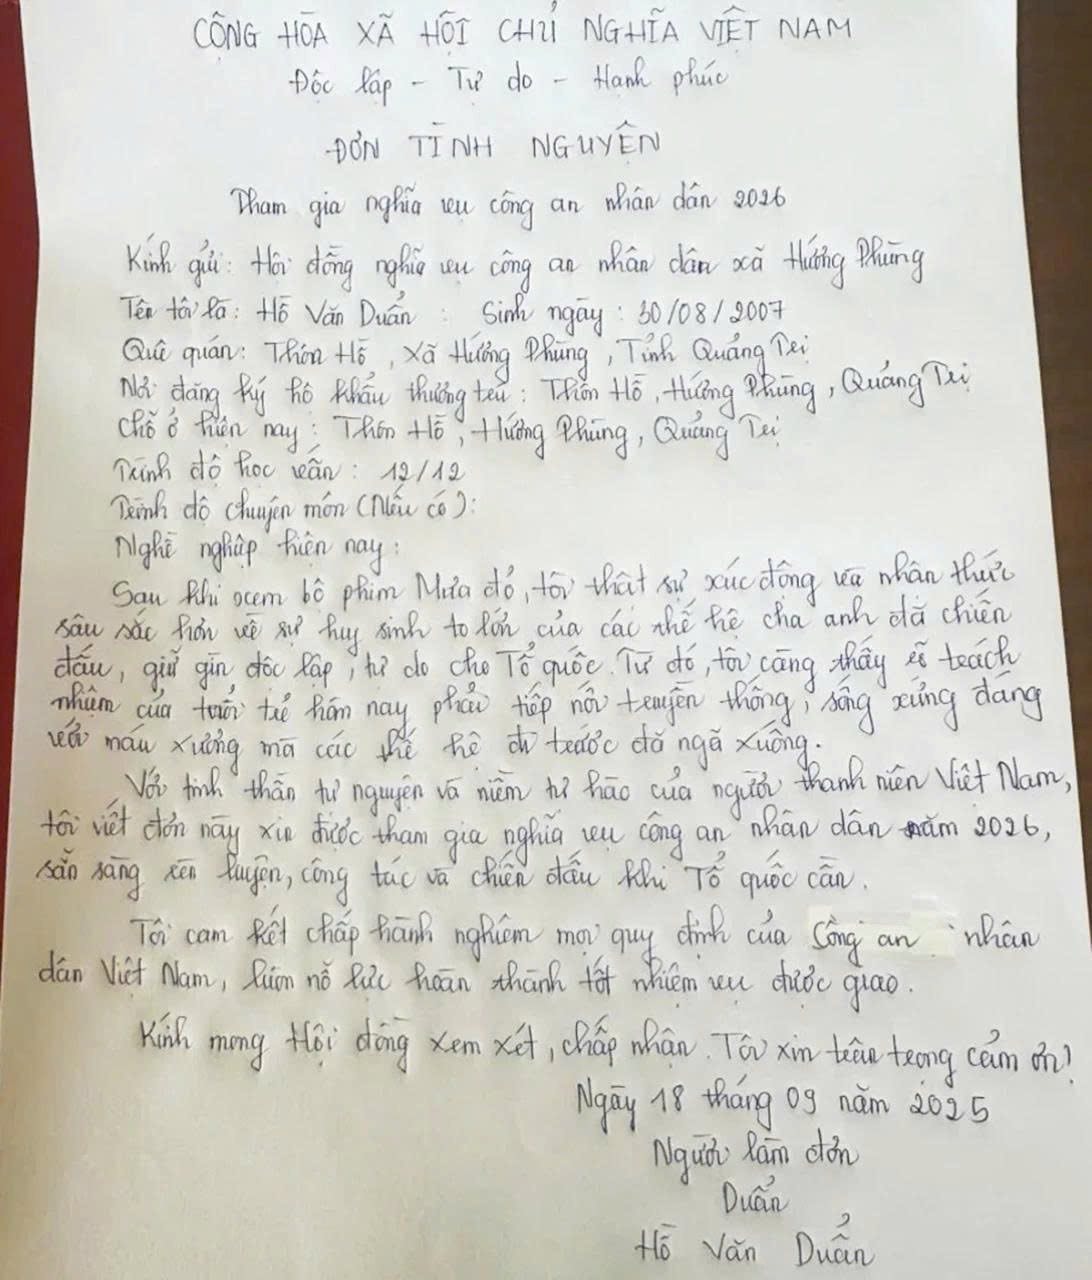 CỘNG HÒA XÃ HỘI CHỦ NGHĨA VIỆT NAM
Độc lập - Tự do - Hạnh phúc
ĐƠN TÌNH NGUYỆN
Tham gia nghĩa vụ công an nhân dân 2026
Kính gửi: Hội đồng nghĩa vụ công an nhân dân xã Hướng Phùng
Tên tôi là: Hồ Văn Duẩn : Sinh ngày: 30/08/2007
Quê quán: Thôn Hồ, Xã Hướng Phùng, Tỉnh Quảng Trị
Nơi đăng ký hộ khẩu thường trú: Thôn Hồ, Hướng Phùng, Quảng Trị
Chỗ ở hiện nay: Thôn Hồ, Hướng Phùng, Quảng Trị
Trình độ học vấn: 12/12
Trình độ chuyên môn (Nếu có):
Nghề nghiệp hiện nay:
Sau khi xem bộ phim Mưa đỏ, tôi thật sự xúc động và nhận thức
sâu sắc hơn về sự huy sinh to lớn của các thế hệ cha anh đã chiến
đấu, giữ gìn độc lập, tự do cho Tổ quốc. Từ đó, tôi càng thấy rõ trách
nhiệm của tuổi trẻ hôm nay phải tiếp nối truyền thống, sống xứng đáng
với máu xương mà các thế hệ đi trước đã ngã xuống.
Với tinh thần tự nguyện và niềm tự hào của người thanh niên Việt Nam,
tôi viết đơn này xin được tham gia nghĩa vụ công an nhân dân năm 2026,
sẵn sàng rèn luyện, công tác và chiến đấu khi Tổ quốc cần.
Tôi cam kết chấp hành nghiêm mọi quy định của Công an nhân
dân Việt Nam, luôn nỗ lực hoàn thành tốt nhiệm vụ được giao.
Kính mong Hội đồng xem xét, chấp nhận. Tôi xin trân trọng cảm ơn!
Ngày 18 tháng 09 năm 2025
Người làm đơn
Duẩn
Hồ Văn Duẩn